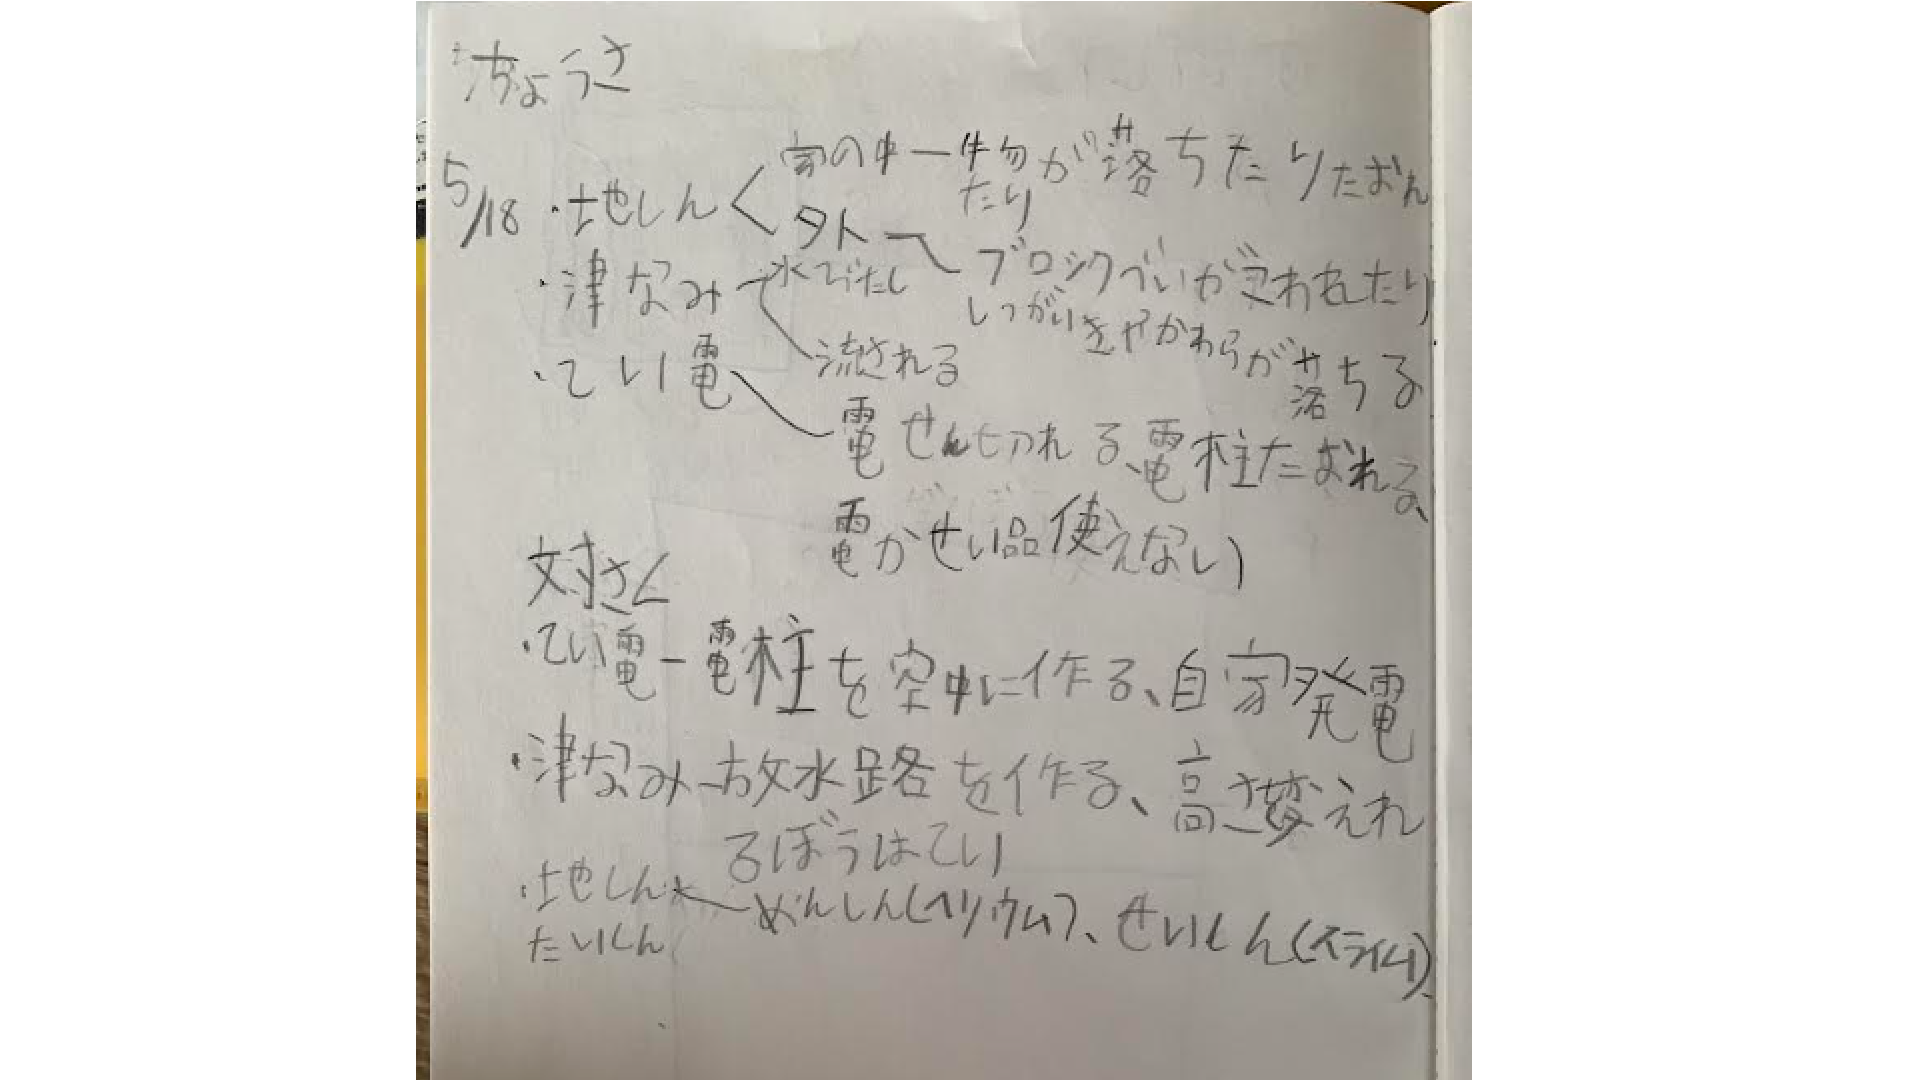 ちょうさ
5/18
・地しん
家の中ー物が落ちたりたおれ
たり
外
ブロックべいがこわれたり
しつがいきやかわらが落ちる
・津なみ
水びたし
流される
・てい電
電せん切れる、電柱たおれる、
電かせい品使えない
対さく
・てい電ー電柱を空中に作る、自家発電
・津なみー放水路を作る、高さ変えれ
るぼうはてい
・地しん
めんしん(ヘリウム)、せいしん(スライム)、
たいしん